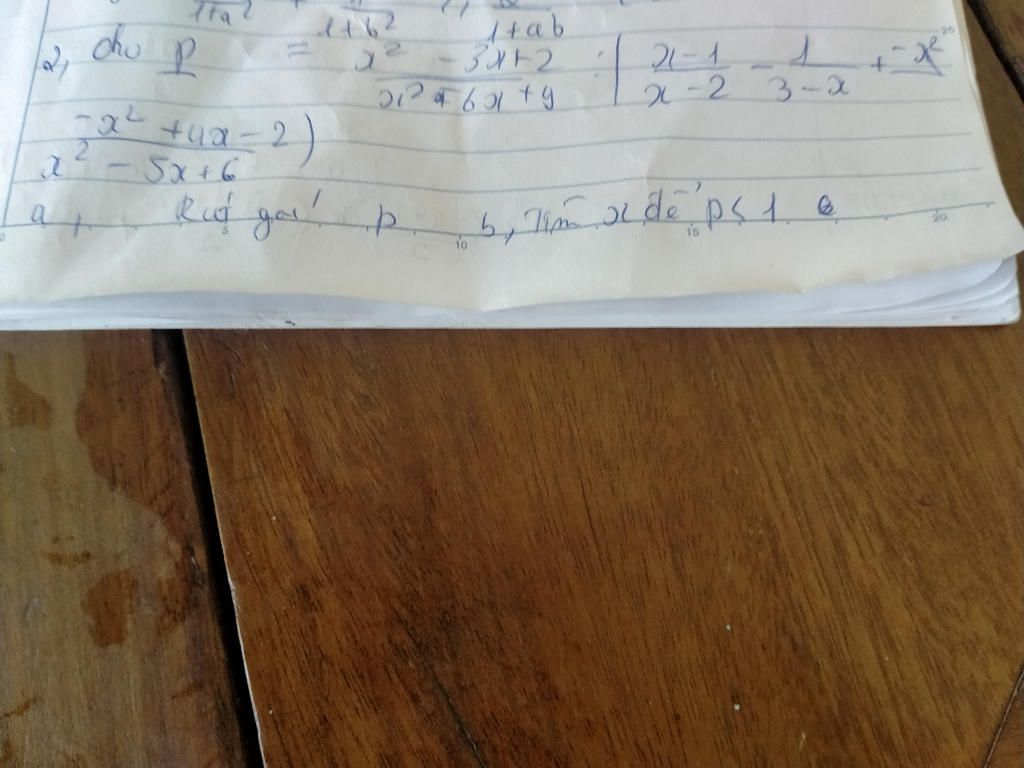 1+a² + 1+b² 1+ab
2, cho P = x² - 3x+2 / x² - 6x + 9 : ( x-1 / x-2 - 1 / 3-x +
-x² + 4x - 2 / x² - 5x + 6 )
a, Rút gọi P b, Tìm x để P < 1